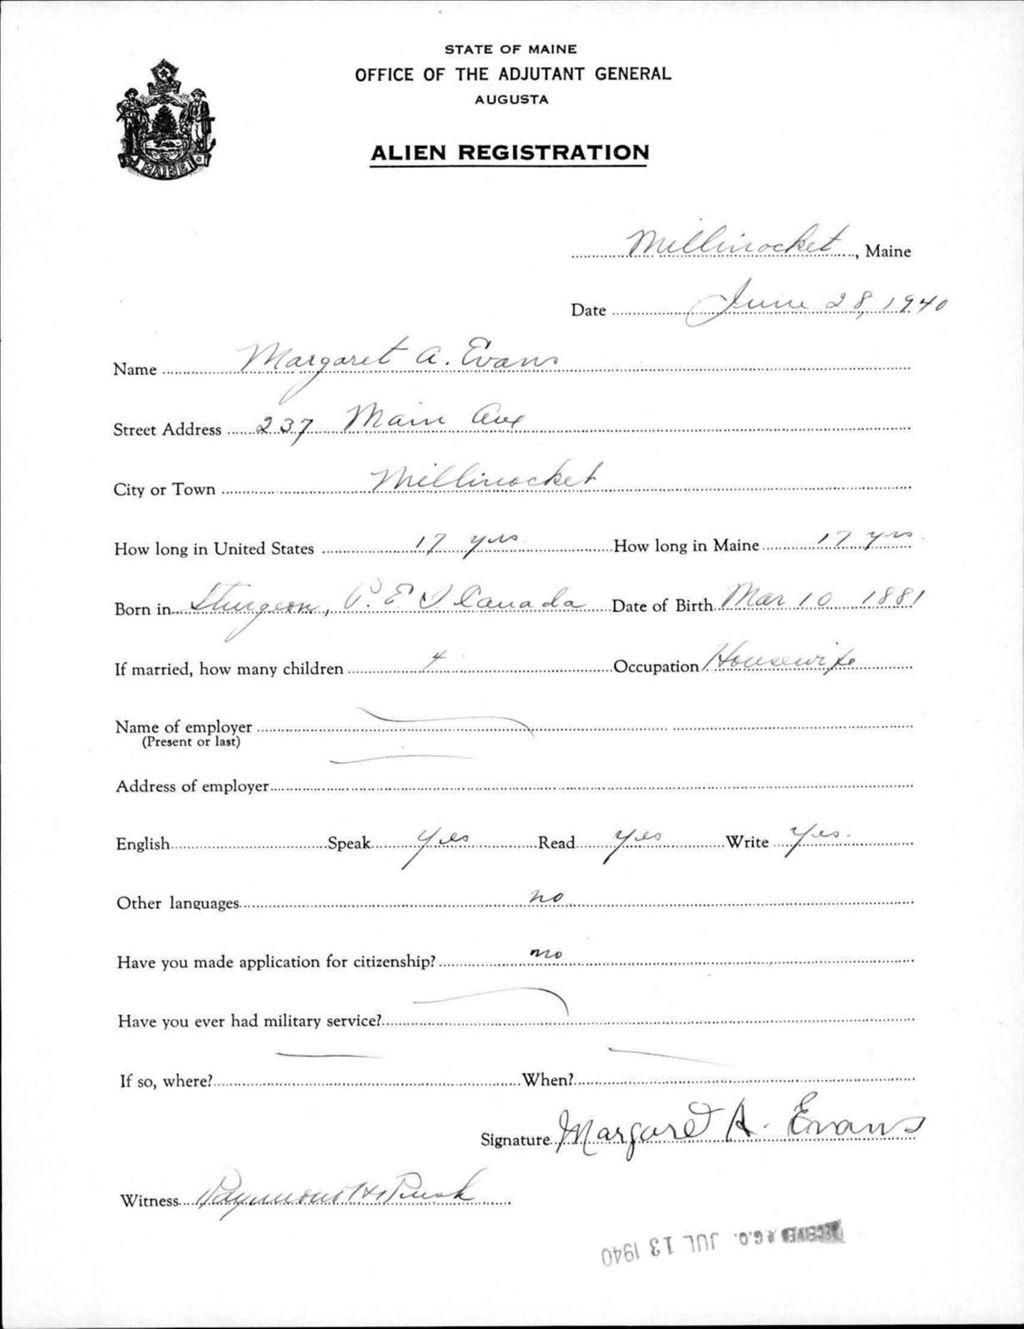 STATE OF MAINE
OFFICE OF THE ADJUTANT GENERAL
AUGUSTA
ALIEN REGISTRATION
Millinocket, Maine
Date June 28, 1940
Name Margaret A. Evans
Street Address 237 Main Ave
City or Town Millinocket
How long in United States 17 yrs How long in Maine 17 yrs
Born in Sturgeon, P. E. I Canada Date of Birth Mar 10 1881
If married, how many children 4 Occupation Housewife
Name of employer
(Present or last)
Address of employer
English Speak Yes Read Yes Write Yes.
Other languages no
Have you made application for citizenship? no
Have you ever had military service?
If so, where? When?
Signature Margaret A. Evans
Witness Raymond H.
RECEIVED A.G.O. JUL 13 1940